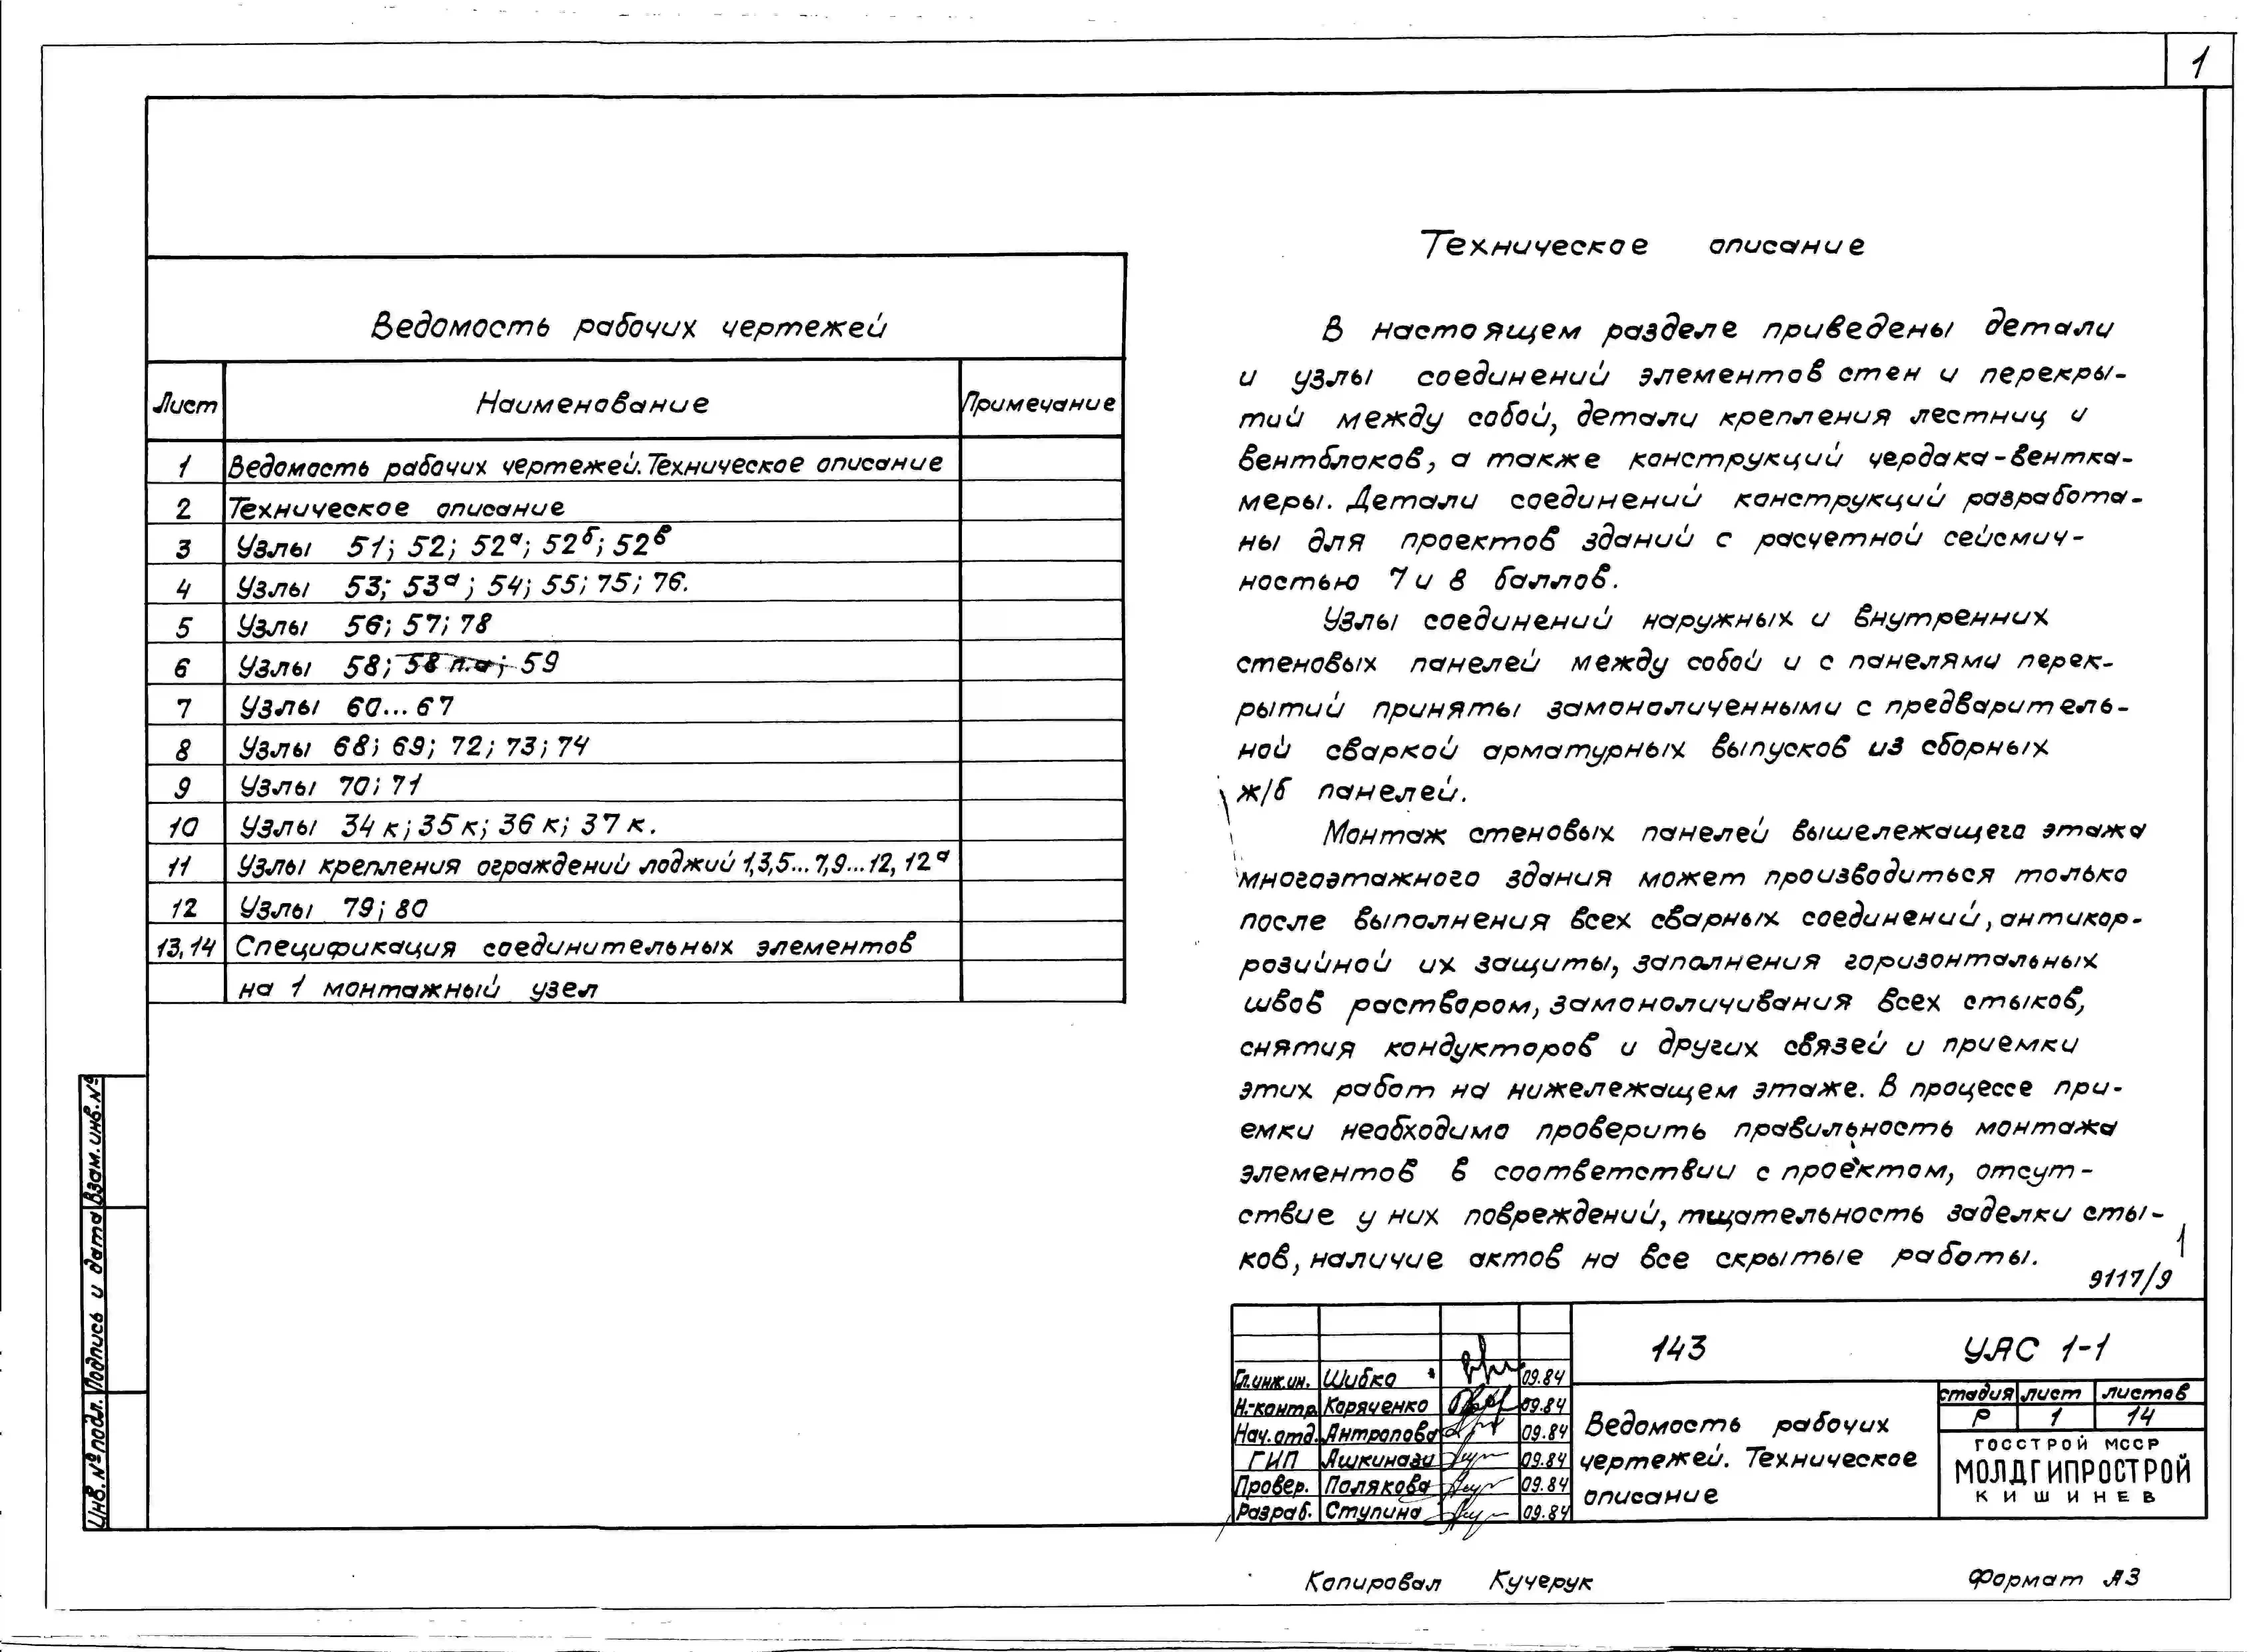 1
Ведомость рабочих чертежей
Лист Наименование Примечание
1 Ведомость рабочих чертежей. Техническое описание
2 Техническое описание
3 Узлы 51; 52; 52а; 52б; 52в
4 Узлы 53; 53а; 54; 55; 75; 76.
5 Узлы 56; 57; 78
6 Узлы 58; 58 п.а; 59
7 Узлы 60...67
8 Узлы 68; 69; 72; 73; 74
9 Узлы 70; 71
10 Узлы 34к; 35к; 36к; 37к.
11 Узлы крепления ограждений лоджий 1,3,5...7,9...12, 12а
12 Узлы 79; 80
13,14 Спецификация соединительных элементов
на 1 монтажный узел
Техническое описание
В настоящем разделе приведены детали
и узлы соединений элементов стен и перекры-
тий между собой, детали крепления лестниц и
вентблоков, а также конструкций чердака-вентка-
меры. Детали соединений конструкций разработа-
ны для проектов зданий с расчетной сейсмич-
ностью 7 и 8 баллов.
Узлы соединений наружных и внутренних
стеновых панелей между собой и с панелями перек-
рытий приняты замоноличенными с предваритель-
ной сваркой арматурных выпусков из сборных
ж/б панелей.
Монтаж стеновых панелей вышележащего этажа
многоэтажного здания может производиться только
после выполнения всех сварных соединений, антикор-
розийной их защиты, заполнения горизонтальных
швов раствором, замоноличивания всех стыков,
снятия кондукторов и других связей и приемки
этих работ на нижележащем этаже. В процессе при-
емки необходимо проверить правильность монтажа
элементов в соответствии с проектом, отсут-
ствие у них повреждений, тщательность заделки сты-
ков, наличие актов на все скрытые работы.
1
9117/9
143 УАС 1-1
Гл.инж.ин. Шибко 09.84
Н.-контр. Коряченко 09.84
Нач.отд. Антропова 09.84
ГИП Ашкинази 09.84
Провер. Полякова 09.84
Разраб. Ступина 09.84
Ведомость рабочих
чертежей. Техническое
описание
стадия лист листов
Р 1 14
ГОССТРОЙ МССР
МОЛДГИПРОСТРОЙ
КИШИНЕВ
Инв. № подл. Подпись и дата Взам. инв. №
Копировал Кучерук
Формат А3